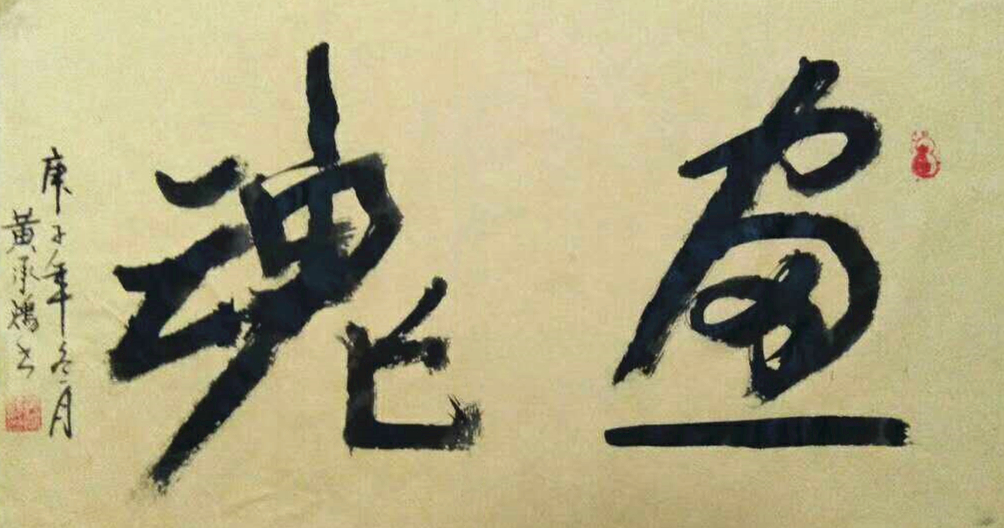 畫魂
庚子年冬月
黄承 书